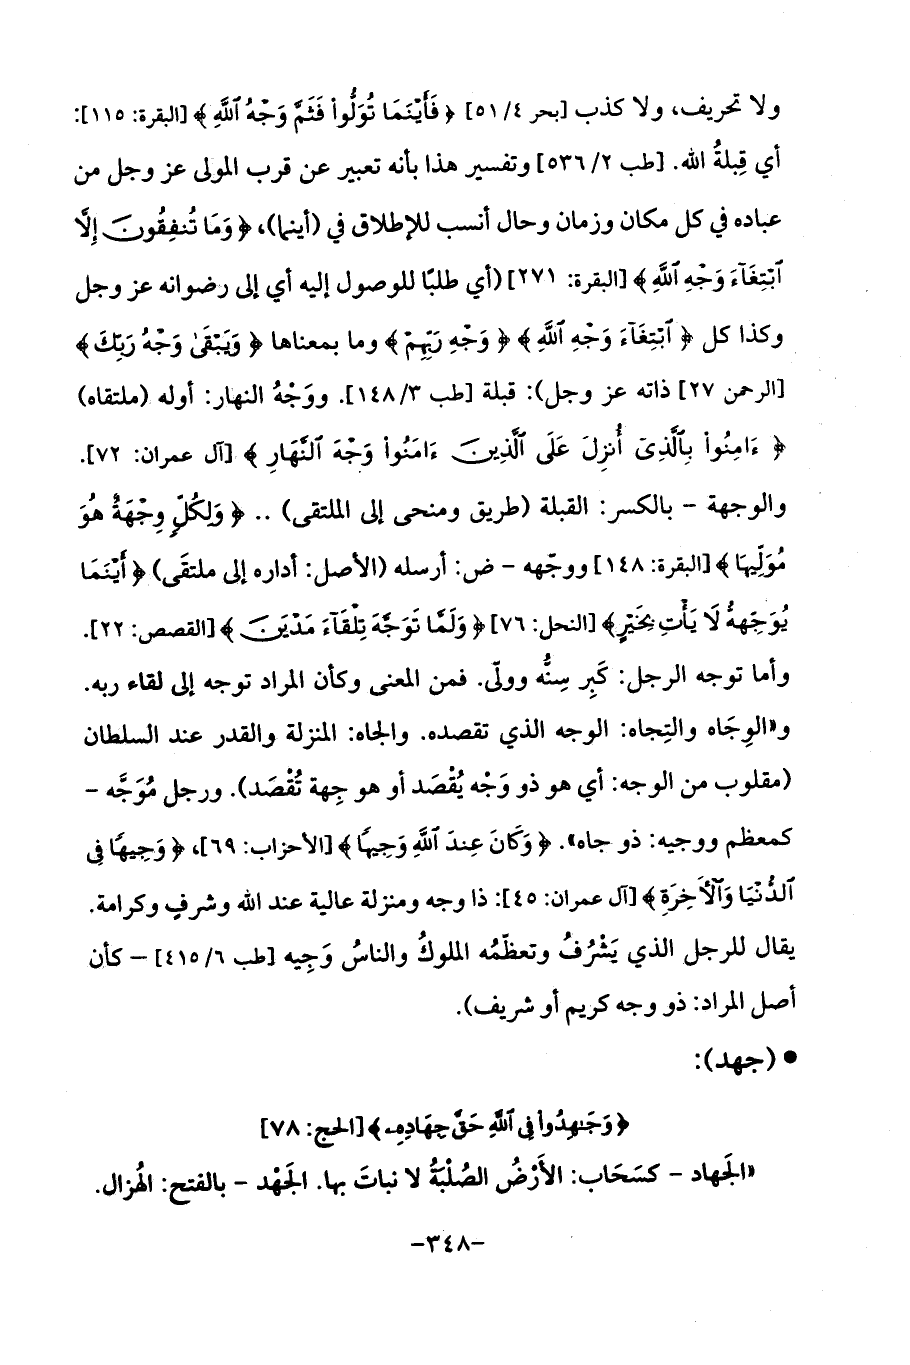 ولا تحريف، ولا كذب [بحر ٤/ ٥١] ﴿ فَأَيْنَمَا تُوَلُّواْ فَثَمَّ وَجْهُ ٱللَّهِ ﴾ [البقرة: ١١٥]:
أي قِبلةُ الله. [طب ٢/ ٥٣٦] وتفسير هذا بأنه تعبير عن قرب المولى عز وجل من
عباده في كل مكان وزمان وحال أنسب للإطلاق في (أينما)، ﴿ وَمَا تُنفِقُونَ إِلَّا
ٱبْتِغَآءَ وَجْهِ ٱللَّهِ ﴾ [البقرة: ٢٧١] (أي طلبًا للوصول إليه أي إلى رضوانه عز وجل
وكذا كل ﴿ ٱبْتِغَآءَ وَجْهِ ٱللَّهِ ﴾ ﴿ وَجْهِ رَبِّهِمْ ﴾ وما بمعناها ﴿ وَيَبْقَىٰ وَجْهُ رَبِّكَ ﴾
[الرحمن ٢٧] ذاته عز وجل): قبلة [طب ٣/ ١٤٨]. ووَجْهُ النهار: أوله (ملتقاه)
﴿ ءَامِنُواْ بِٱلَّذِىٓ أُنزِلَ عَلَى ٱلَّذِينَ ءَامَنُواْ وَجْهَ ٱلنَّهَارِ ﴾ [آل عمران: ٧٢].
والوجهة - بالكسر: القبلة (طريق ومنحى إلى الملتقى) .. ﴿ وَلِكُلٍّ وِجْهَةٌ هُوَ
مُوَلِّيهَا ﴾ [البقرة: ١٤٨] ووجّهه - ض: أرسله (الأصل: أداره إلى ملتقَى) ﴿ أَيْنَمَا
يُوَجِّههُّ لَا يَأْتِ بِخَيْرٍ ﴾ [النحل: ٧٦] ﴿ وَلَمَّا تَوَجَّهَ تِلْقَآءَ مَدْيَنَ ﴾ [القصص: ٢٢].
وأما توجه الرجل: كَبِر سِنُّه وولّى. فمن المعنى وكأن المراد توجه إلى لقاء ربه.
و«الوِجَاه والتِجاه: الوجه الذي تقصده. والجاه: المنزلة والقدر عند السلطان
(مقلوب من الوجه: أي هو ذو وَجْه يُقْصَد أو هو جِهة تُقْصَد). ورجل مُوَجَّه -
كمعظم ووجيه: ذو جاه». ﴿ وَكَانَ عِندَ ٱللَّهِ وَجِيهًا ﴾ [الأحزاب: ٦٩]، ﴿ وَجِيهًا فِى
ٱلدُّنْيَا وَٱلْأَخِرَةِ ﴾ [آل عمران: ٤٥]: ذا وجه ومنزلة عالية عند الله وشرفٍ وكرامة.
يقال للرجل الذي يَشْرُفُ وتعظّمُه الملوكُ والناسُ وَجِيه [طب ٦/ ٤١٥] - كأن
أصل المراد: ذو وجه كريم أو شريف).
• (جهد):
﴿ وَجَـٰهِدُواْ فِى ٱللَّهِ حَقَّ جِهَادِهِۦ ﴾ [الحج: ٧٨]
«الجَهاد - كسَحَاب: الأَرْضُ الصُلْبَةُ لا نباتَ بها. الجَهْد - بالفتح: الهُزال.
-٣٤٨-